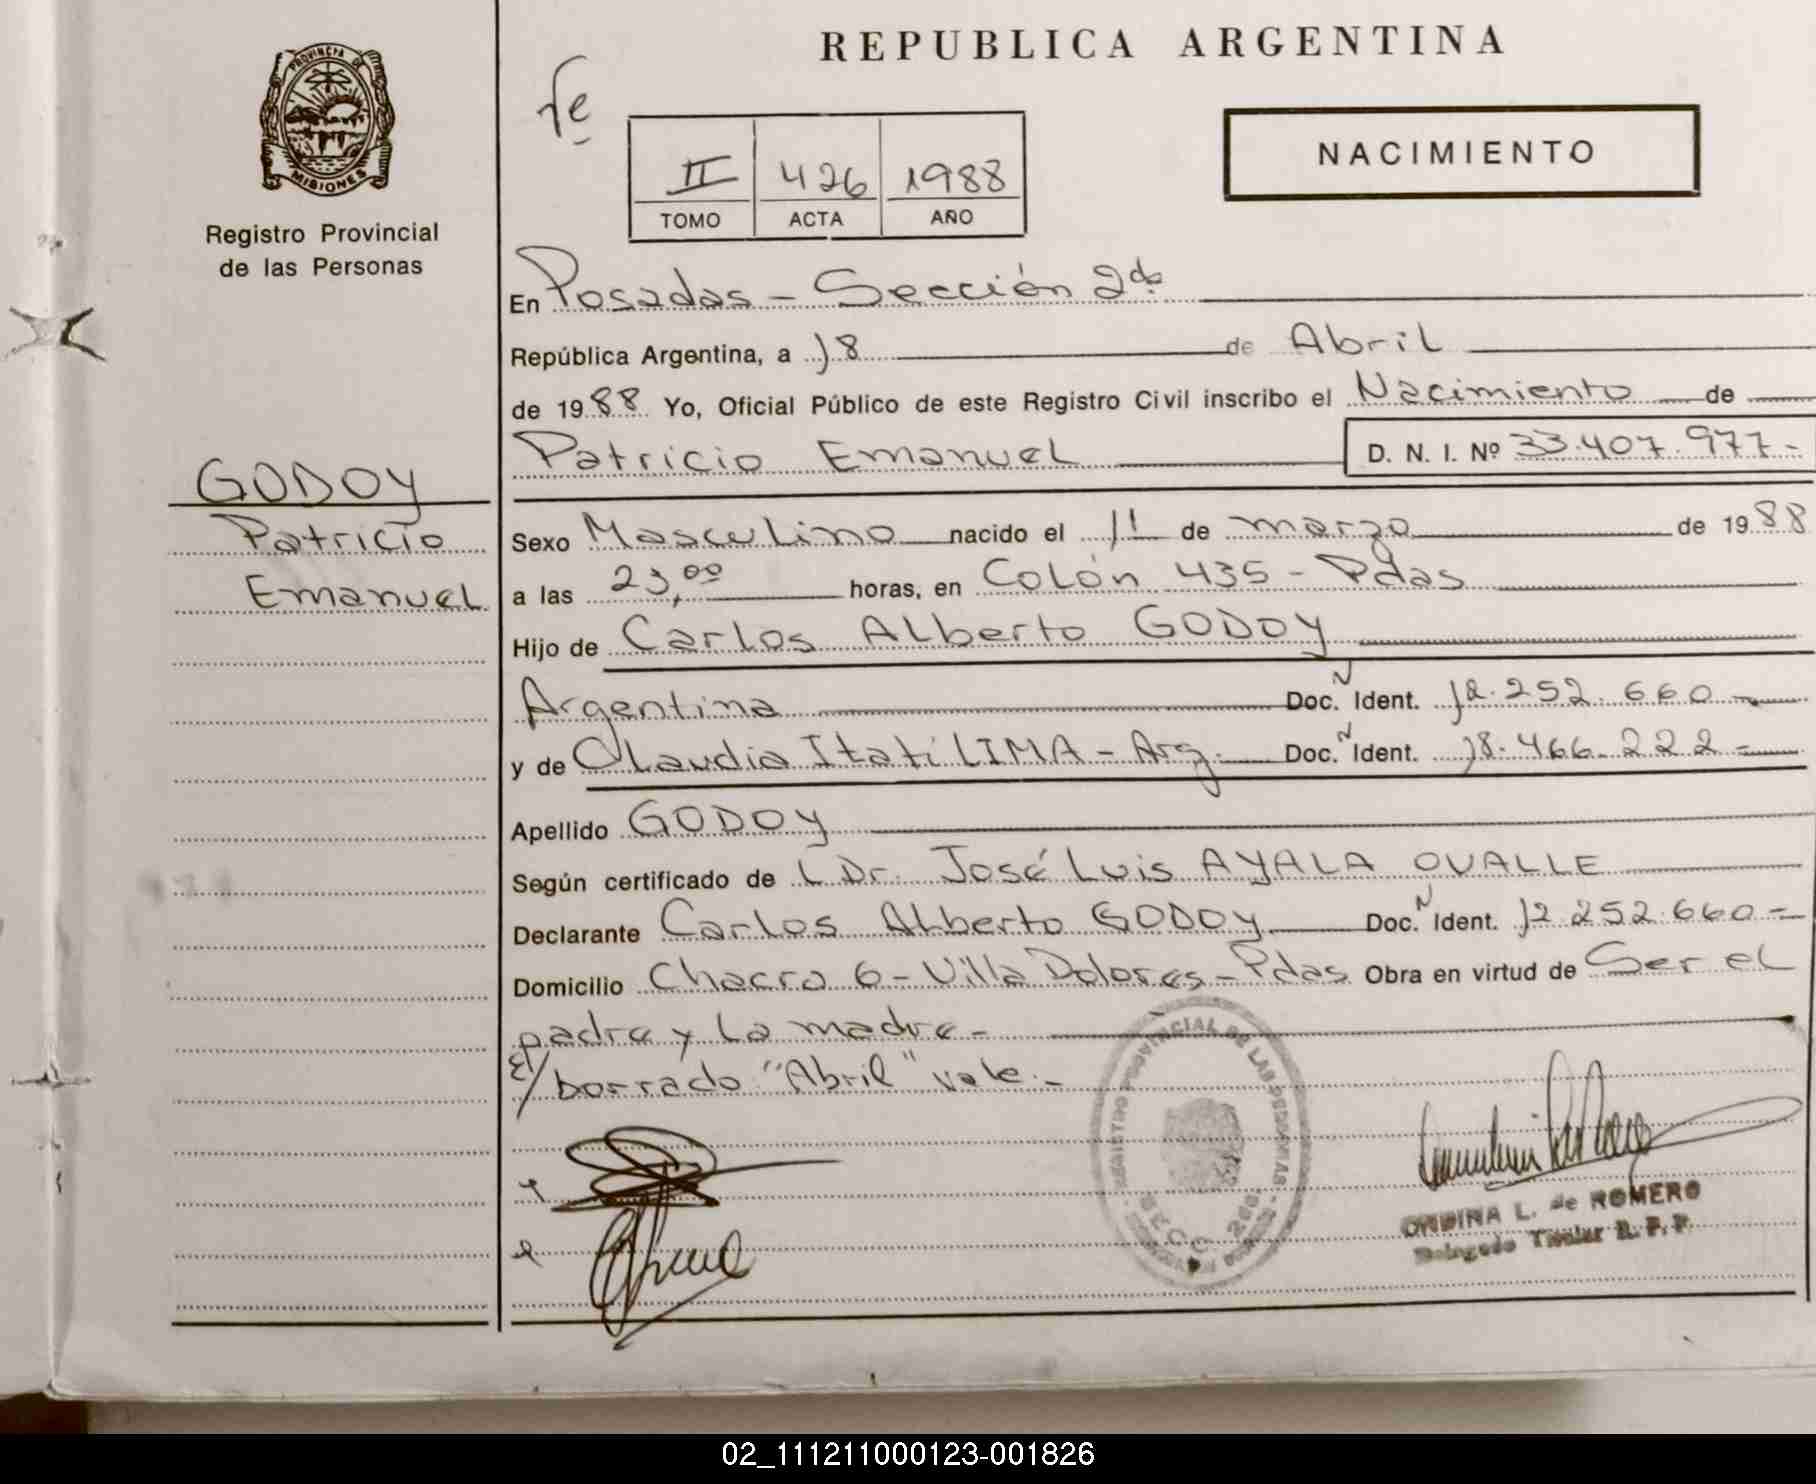 REPUBLICA ARGENTINA
PROVINCIA DE
MISIONES
Registro Provincial
de las Personas
Fe
II 426 1988
TOMO ACTA AÑO
NACIMIENTO
En Posadas - Sección 2da
República Argentina, a 18 de Abril
de 1988 Yo, Oficial Público de este Registro Civil inscribo el Nacimiento de
Patricio Emanuel D. N. I. Nº 33.407.977-
GODOY
Patricio
Emanuel
Sexo Masculino nacido el 11 de marzo de 1988
a las 23,00 horas, en Colón 435 - Pdas
Hijo de Carlos Alberto GODOY
Argentina Doc. N Ident. 12.252.660-
y de Claudia Itatí LIMA - Arg. Doc. N Ident. 18.466.222-
Apellido GODOY
Según certificado de L Dr. José Luis AYALA OVALLE
Declarante Carlos Alberto GODOY Doc. N Ident. 12.252.660-
Domicilio Chacra 6 - Villa Dolores - Pdas Obra en virtud de Ser el
padre y la madre-
E/ borrado "Abril" vale.-
PROVINCIAL DE LAS PERSONAS
SECC. 2da
L. de ROMERO
Delegado Titular R. P. P.
02_111211000123-001826